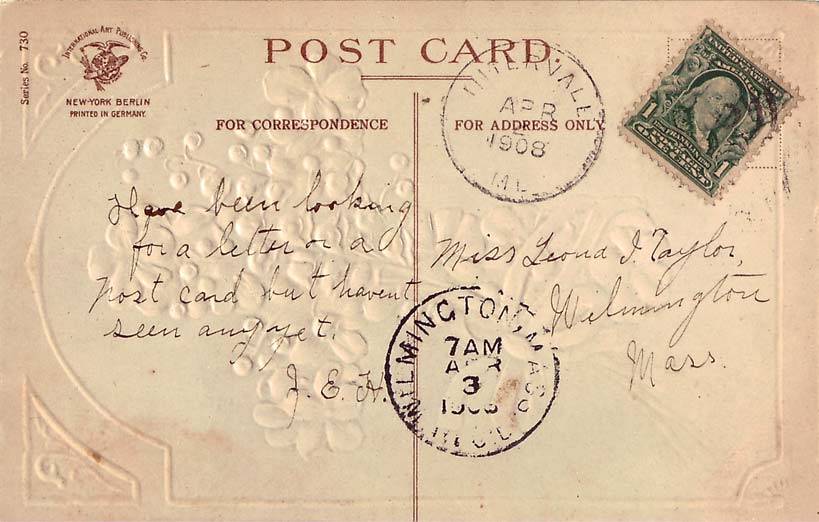 Series No. 730
INTERNATIONAL ART PUBLISHING CO.
NEW-YORK BERLIN
PRINTED IN GERMANY.
POST CARD.
FOR CORRESPONDENCE
FOR ADDRESS ONLY
INTERVALE
APR
1908
UNITED STATES OF AMERICA
1 FRANKLIN 1
Have been looking
for a letter or a
post card but havent
seen any yet.
J. E. H.
Miss Leona J. Taylor,
Wilmington
Mass.
WILMINGTON, MASS.
7 AM
APR
3
1908